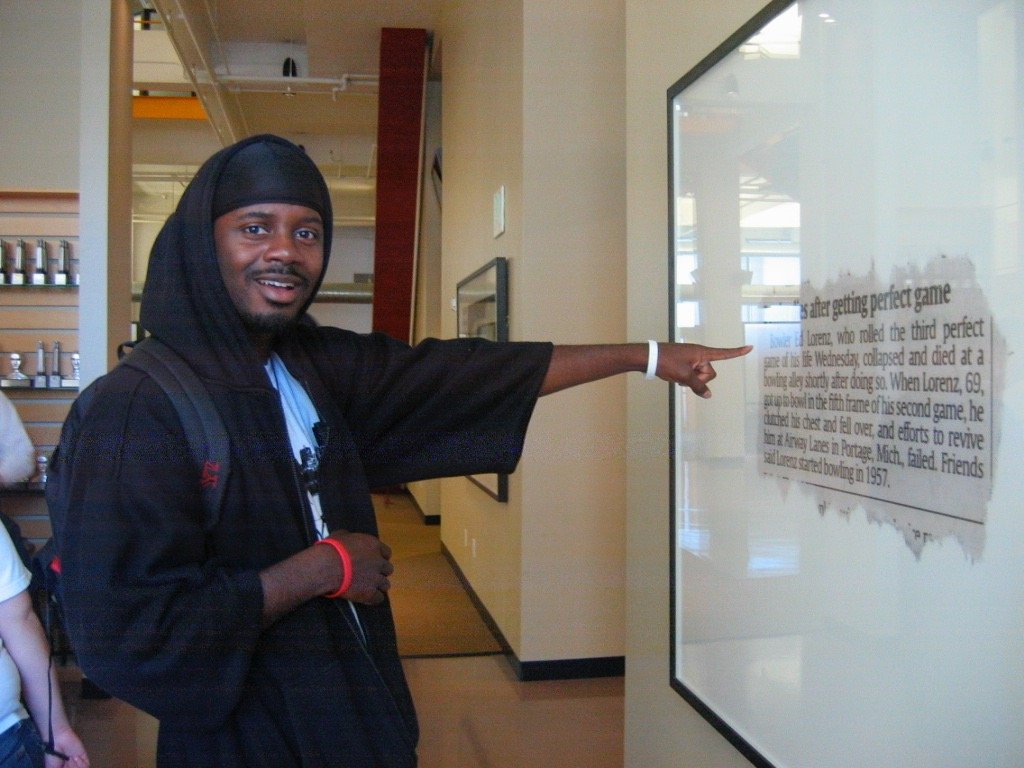 es after getting perfect game
Bowler Ed Lorenz, who rolled the third perfect
game of his life Wednesday, collapsed and died at a
bowling alley shortly after doing so. When Lorenz, 69,
got up to bowl in the fifth frame of his second game, he
clutched his chest and fell over, and efforts to revive
him at Airway Lanes in Portage, Mich., failed. Friends
said Lorenz started bowling in 1957.